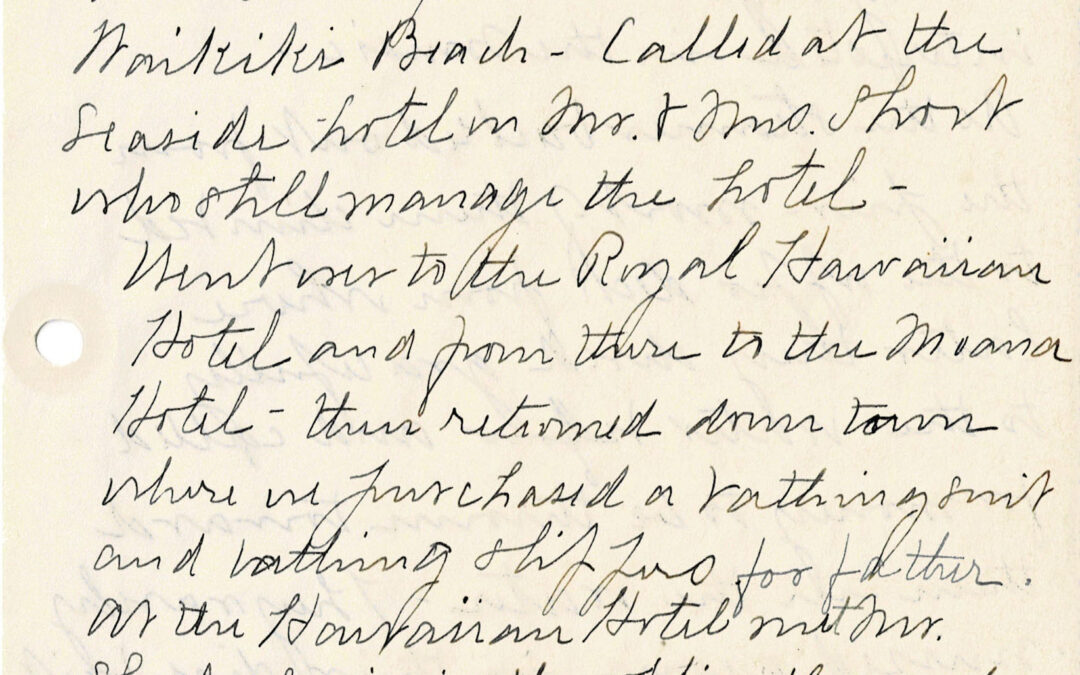 Waikiki Beach - Called at the
Seaside hotel on Mr. & Mrs. Short
who still manage the hotel -
Went over to the Royal Hawaiian
Hotel and from there to the Moana
Hotel - then returned down town
where we purchased a bathing suit
and bathing slippers for father.
At the Hawaiian Hotel met Mr.